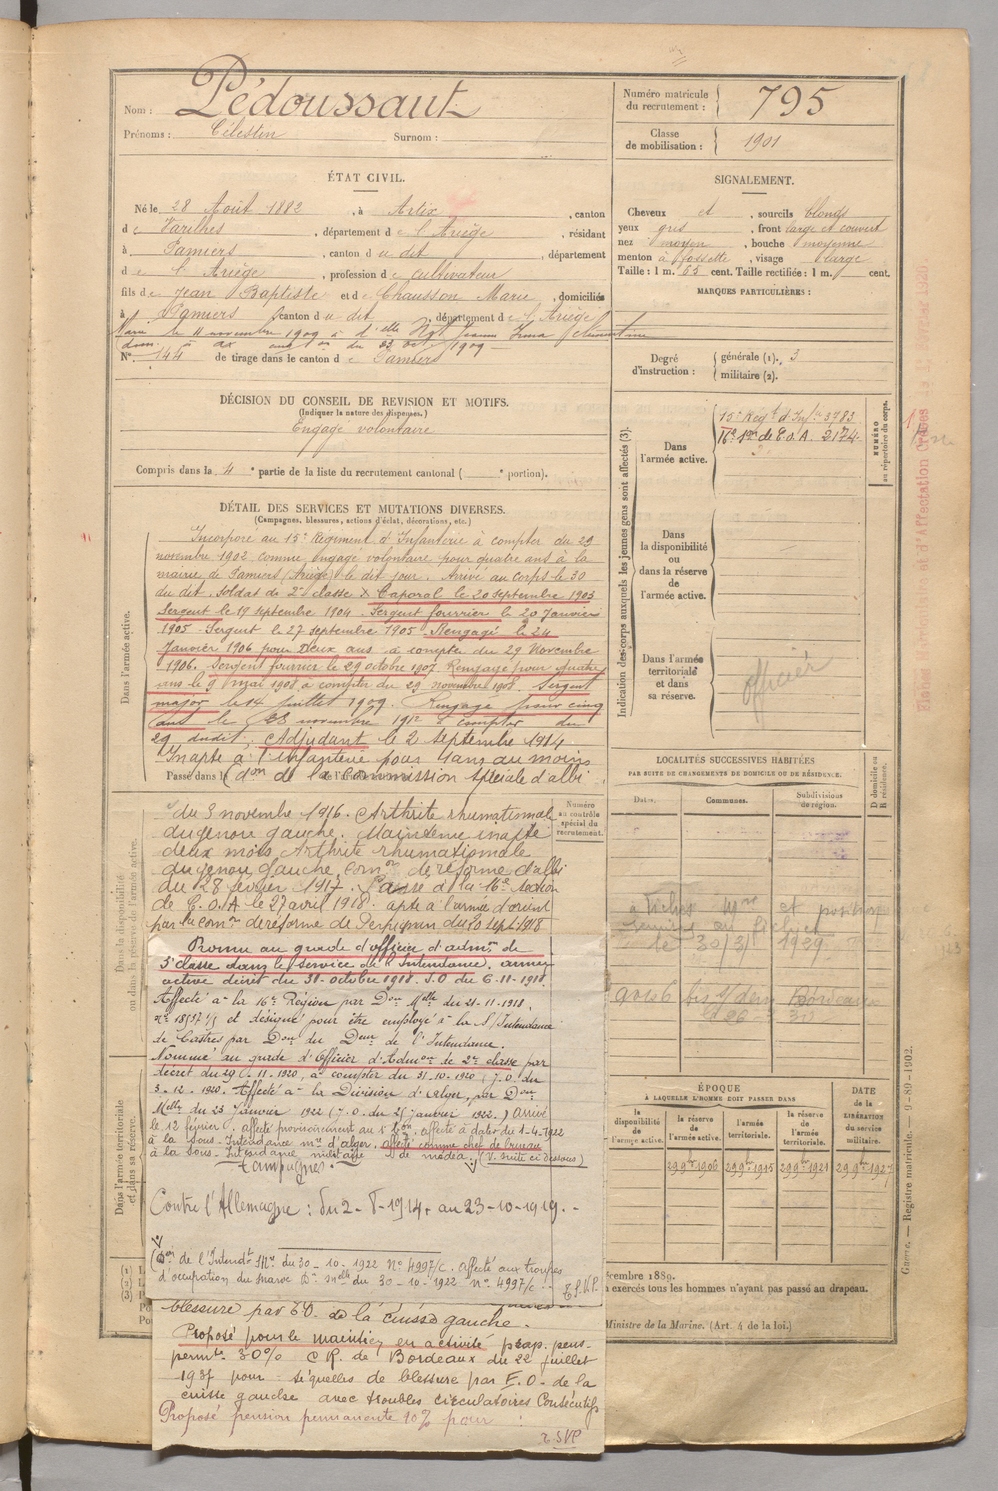 Nom : Pédoussaut
Prénoms : Célestin Surnom :
Numéro matricule du recrutement : 795
Classe de mobilisation : 1901
ÉTAT CIVIL.
Né le 28 Août 1882, à Artix, canton
de Varilhes, département de l'Ariège, résidant
à Pamiers, canton du dit, département
de l'Ariège, profession de cultivateur
fils de Jean Baptiste et de Chausson Marie, domiciliés
à Pamiers canton du dit, département de l'Ariège
Marié le 11 novembre 1909 à d'elle Jeanne Irma Clémentine
dom. à Ax du 23 oct. 1909
N° 144 de tirage dans le canton de Pamiers
SIGNALEMENT.
Cheveux et, sourcils blonds
yeux gris, front large et couvert
nez moyen, bouche moyenne
menton à fossette, visage large
Taille : 1 m. 65 cent. Taille rectifiée : 1 m. cent.
MARQUES PARTICULIÈRES :
Degré d'instruction : générale (1). 3
militaire (2).
DÉCISION DU CONSEIL DE REVISION ET MOTIFS.
(Indiquer la nature des dispenses.)
Engagé volontaire
Compris dans la 4e partie de la liste du recrutement cantonal ( e portion).
DÉTAIL DES SERVICES ET MUTATIONS DIVERSES.
(Campagnes, blessures, actions d'éclat, décorations, etc.)
Dans l'armée active.
Incorporé au 15e Régiment d'Infanterie à compter du 29
novembre 1902 comme engagé volontaire pour quatre ans à la
mairie de Pamiers (Ariège) le dit jour. Arrivé au corps le 30
du dit. Soldat de 2e classe X Caporal le 20 septembre 1903
Sergent le 19 septembre 1904. Sergent fourrier le 20 Janvier
1905. Sergent le 27 septembre 1905. Rengagé le 24
Janvier 1906 pour Deux ans à compter du 29 Novembre
1906. Sergent fourrier le 29 octobre 1907 Rengagé pour quatre
ans le 9 mai 1908 à compter du 29 novembre 1908. Sergent
major le 14 juillet 1909. Rengagé pour cinq
ans le 23 novembre 1912 à compter du
29 dudit, Adjudant le 2 septembre 1914.
Inapte à l'infanterie pour 4 ans au moins
Passé dans l
don de la Commission spéciale d'albi
du 3 novembre 1916. Arthrite rhumatismale
du genou gauche. Maintenu inapte
deux mois Arthrite rhumatismale
du genou gauche, comon de réforme d'albi
du 28 février 1917. Passé à la 16e section
de C.O.A. le 27 avril 1918. apte à l'armée d'orient
par la comon de réforme de Perpignan du 20 sept 1918
Promu au grade d'officier d'admon de
3e classe dans le service de l'Intendance, armée
active décret du 31 octobre 1918. J.O du 6-11-1918.
Affecté à la 16e Région par Don Melle du 21-11-1918,
et désigné pour être employé à la S/Intendance
de Castres par Don du Deur de l'Intendance.
Nommé au grade d'Officier d'Admon de 2e classe par
décret du 29-11-1920, à compter du 31-10-1920 (J.O. du
3-12-1920. Affecté à la Division d'Alger, par Don
Melle du 23 Janvier 1922 (J.O. du 25 Janvier 1922.) Arrivé
le 12 février affecté provisoirement au affecté à dater du 1-4-1922
à la Sous-Intendance mre d'alger, affecté comme chef de bureau
à la Sous-Intendance militaire de médéa. (V. suite ci dessous)
Campagnes.
Contre l'Allemagne : du 2-8-1914 au 23-10-1919.
(Don de l'Intendt Mre du 30-10-1922 No 4997/c. affecté aux troupes
d'occupation du maroc Dn melle du 30-10-1922 no 4997/c T.S.V.P.
blessure par EO. de la cuisse gauche.
Proposé pour le maintien en activité prop. pens.
permte 30% C R. de Bordeaux du 22 juillet
1937 pour séquelles de blessure par E.O. de la
cuisse gauche avec troubles circulatoires Consécutifs
Proposé pension permanente 10% pour :
T.SVP
Dans la disponibilité
ou dans la réserve de l'armée active.
Dans l'armée territoriale
et dans sa réserve.
Numéro
au contrôle
spécial du
recrutement.
(1)
(2)
(3)
Indication des corps auxquels les jeunes gens sont affectés (3).
NUMÉRO
au répertoire du corps.
Dans
l'armée active.
15e Régt d'Infie 3783
16e son de C.O.A. 2174
Dans
la disponibilité
ou
dans la réserve
de
l'armée active.
Dans l'armée
territoriale
et dans
sa réserve.
Officier
LOCALITÉS SUCCESSIVES HABITÉES
PAR SUITE DE CHANGEMENTS DE DOMICILE OU DE RÉSIDENCE.
Dates.
Communes.
Subdivisions
de région.
D domicile ou
R résidence.
et position
remise au fichier
le 30/3/1929
Bordeaux
ÉPOQUE
À LAQUELLE L'HOMME DOIT PASSER DANS
DATE
de la
LIBÉRATION
du service
militaire.
la
disponibilité
de
l'armée active.
la réserve
de
l'armée active.
l'armée
territoriale.
la réserve
de l'armée
territoriale.
29 9bre 1906
29 9bre 1915
29 9bre 1921
29 9bre 1927
décembre 1889.
n exercés tous les hommes n'ayant pas passé au drapeau.
Ministre de la Marine. (Art. 4 de la loi.)
Guerre. — Registre matricule. — 9-89-1902.